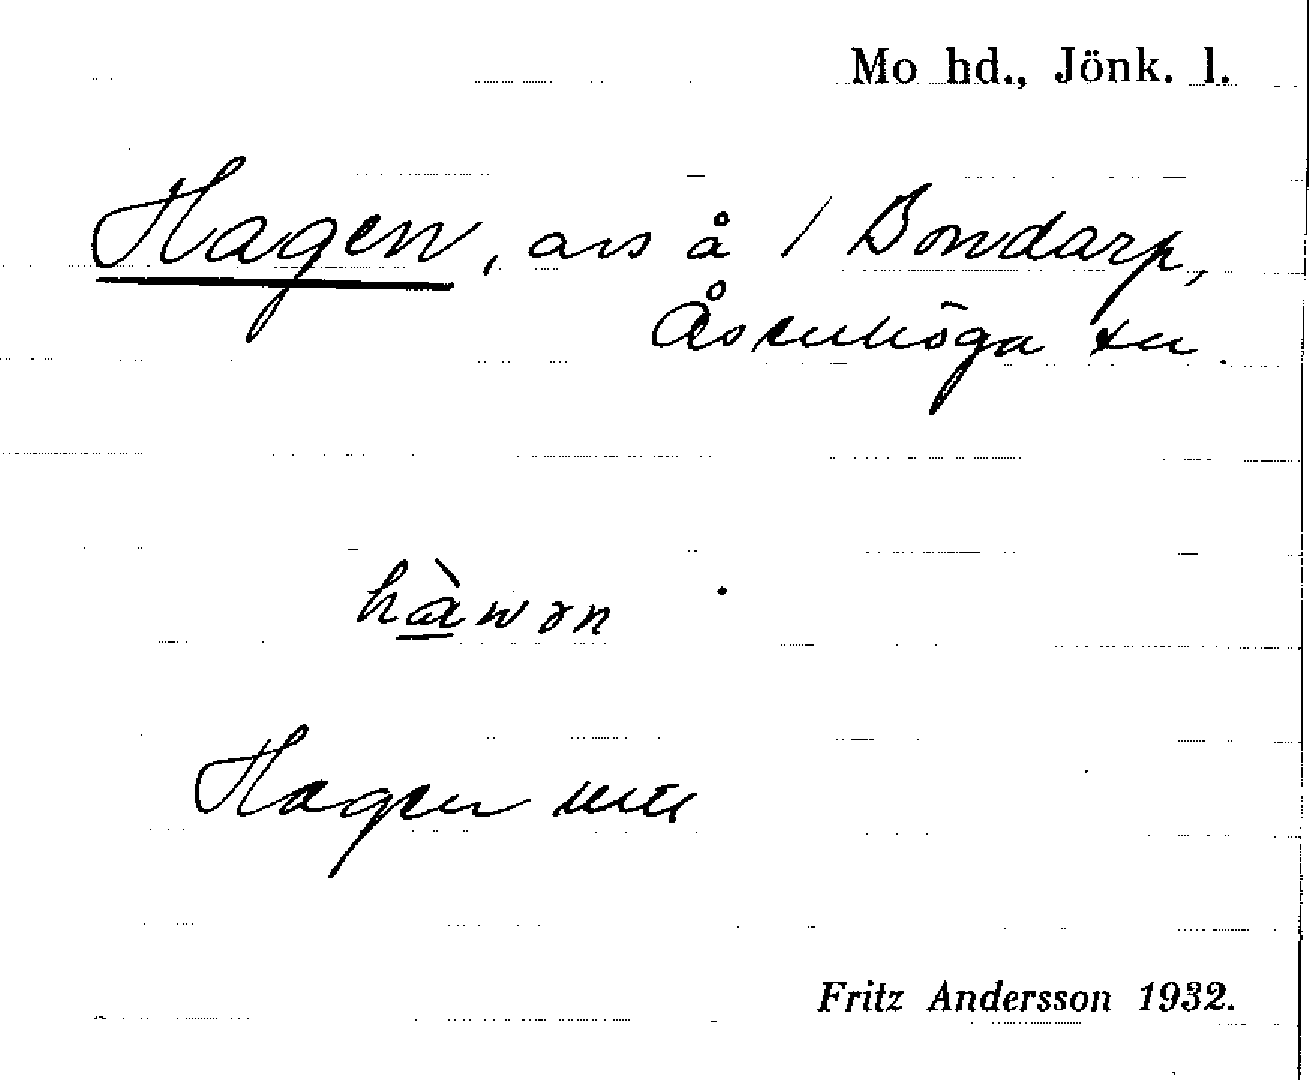 Mo hd., Jönk. l.
Hagen, avs å 1 Bondarp,
Åsenhöga sn.
hàwən
Hagen
Fritz Andersson 1932.